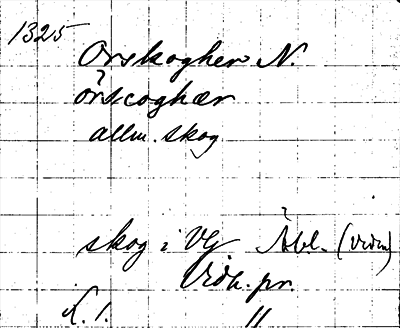 1325
Orskogher N.
örscoghær
allm. skog
skog i Vg Åbl. (vidim)
Vidh. pr.
N. 1. 11